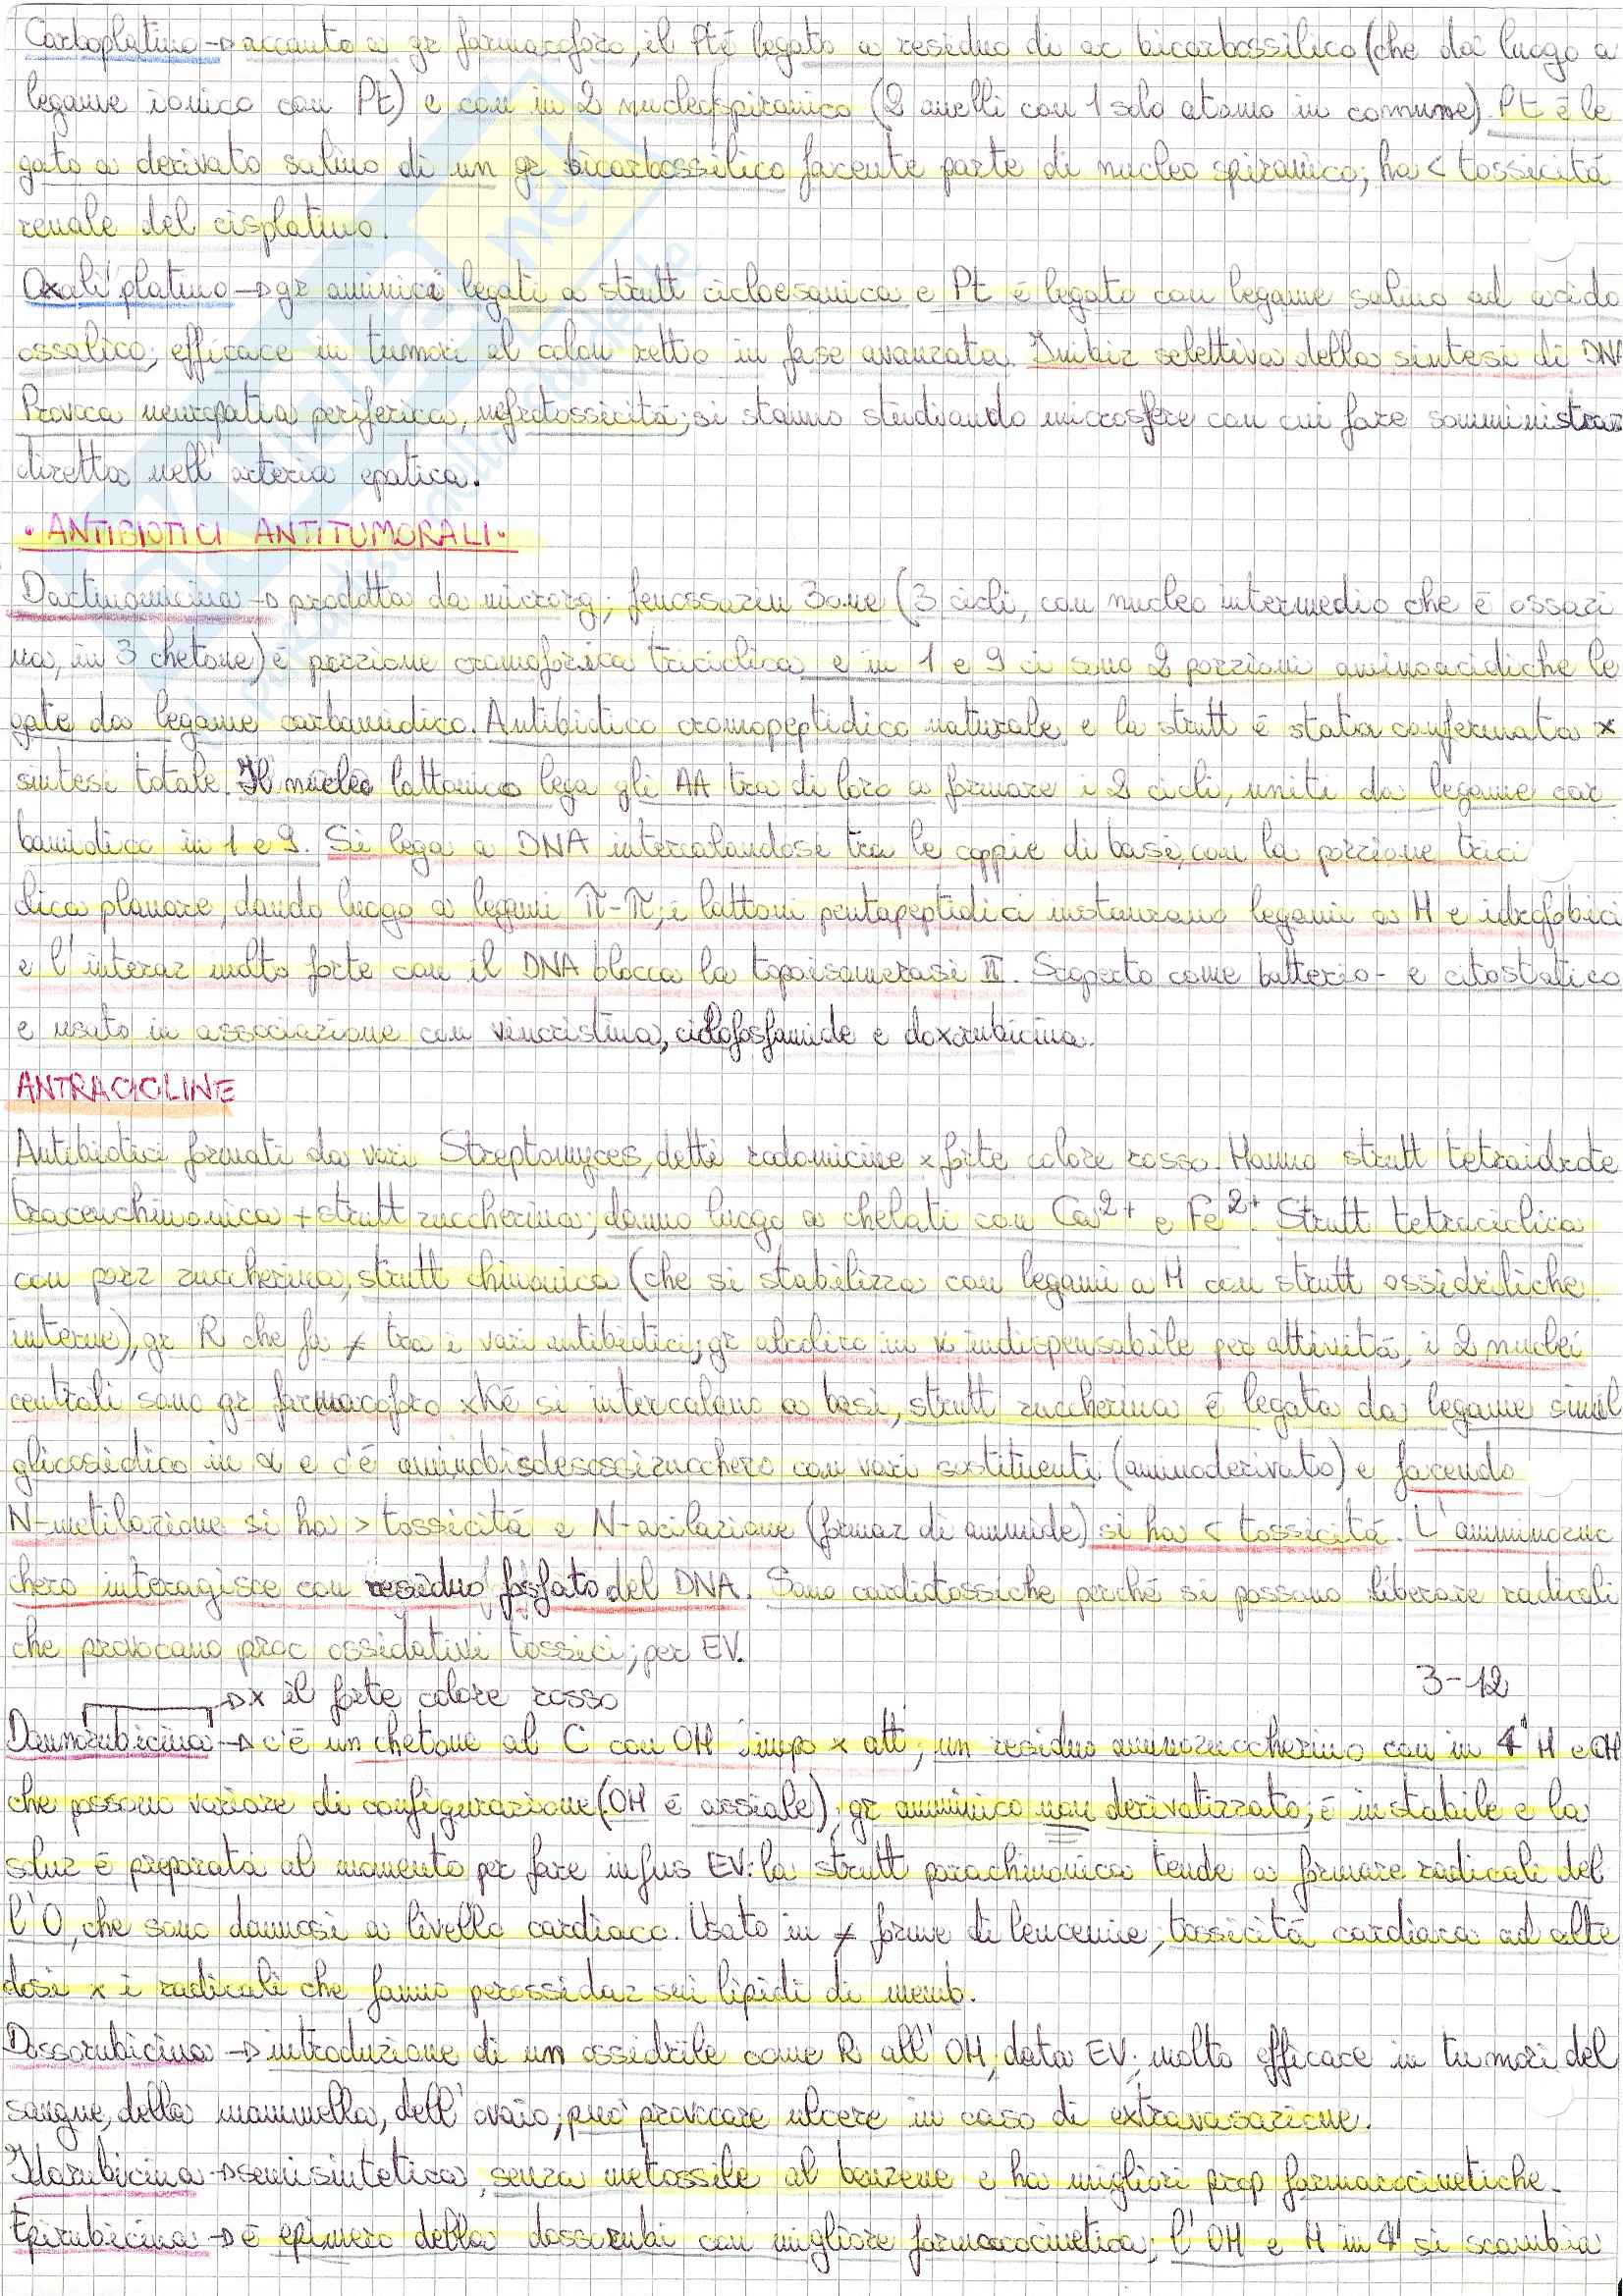 Carboplatino → accanto a gr farmacoforo, il Pt è legato a residuo di ac bicarbossilico (che da' luogo a
legame ionico con Pt) e con in 2 nucleo spiranico (2 anelli con 1 solo atomo in comune). Pt è le
gato a derivato salino di un gr bicarbossilico facente parte di nucleo spiranico; ha < tossicità
renale del cisplatino.
Oxaliplatino → gr aminici legati a strutt cicloesanica e Pt è legato con legame salino ad acido
ossalico; efficace in tumori al colon retto in fase avanzata. Inibiz selettiva della sintesi di DNA
Provoca neuropatia periferica, nefrotossicità; si stanno studiando microsfere con cui fare somministraz
diretta nell'arteria epatica.
• ANTIBIOTICI ANTITUMORALI •
Dactinomicina → prodotta da microrg, fenossazin 3one (3 cicli, con nucleo intermedio che è ossazi
na, in 3 chetone) è porzione cromoforica triciclica e in 1 e 9 ci sono 2 porzioni aminoacidiche le
gate da legame carbamidico. Antibiotico cromopeptidico naturale e la strutt è stata confermata x
sintesi totale. Il nucleo lattonico lega gli AA tra di loro a formare i 2 cicli, uniti da legame car
bamidico in 1 e 9. Si lega a DNA intercalandosi tra le coppie di basi, con la porzione trici
clica planare, dando luogo a legami π-π; i lattoni pentapeptidici instaurano legami a H e idrofobici
e l'interaz molto forte con il DNA blocca la topoisomerasi II. Scoperto come batterio- e citostatico
e usato in associazione con vincristina, ciclofosfamide e doxorubicina.
ANTRACICLINE
Antibiotici formati da vari Streptomyces, detti rodomicine x forte colore rosso. Hanno strutt tetraidrote
tracenchinonica + strutt zuccherina; danno luogo a chelati con Ca2+ e Fe2+. Strutt tetraciclica
con porz zuccherina, strutt chinonica (che si stabilizza con legami a H con strutt ossidriliche
interne), gr R che fa ≠ tra i vari antibiotici; gr alcolico in α indispensabile per attività, i 2 nuclei
centrali sono gr farmacoforo xké si intercalano a basi, strutt zuccherina è legata da legame simil
glicosidico in α e c'è aminobisdesossizucchero con vari sostituenti (aminoderivato) e facendo
N-metilazione si ha > tossicità e N-acilazione (formaz di ammide) si ha < tossicità. L'amminozuc
chero interagisce con residuo fosfato del DNA. Sono cardiotossiche perché si possono liberare radicali
che provocano proc ossidativi tossici; per EV.
→ x il forte colore rosso 3-12
Daunorubicina → c'è un chetone al C con OH impo x att; un residuo amminozuccherino con in 4' H e OH
che possono variare di configurazione (OH è assiale); gr amminico non derivatizzato; è instabile e la
soluz è preparata al momento per fare infus EV: la strutt parachinonica tende a formare radicali del
l'O, che sono dannosi a livello cardiaco. Usato in ≠ forme di leucemie, tossicità cardiaca ad alte
dosi x i radicali che fanno perossidaz sui lipidi di memb.
Dossorubicina → introduzione di un ossidrile come R all'OH, data EV; molto efficace in tumori del
sangue, della mammella, dell'ovaio; può provocare ulcere in caso di extravasazione.
Idarubicina → semisintetica, senza metossile al benzene e ha migliori prop farmacocinetiche.
Epirubicina → è epimero della dossorubi con migliore farmacocinetica; l'OH e H in 4' si scambia